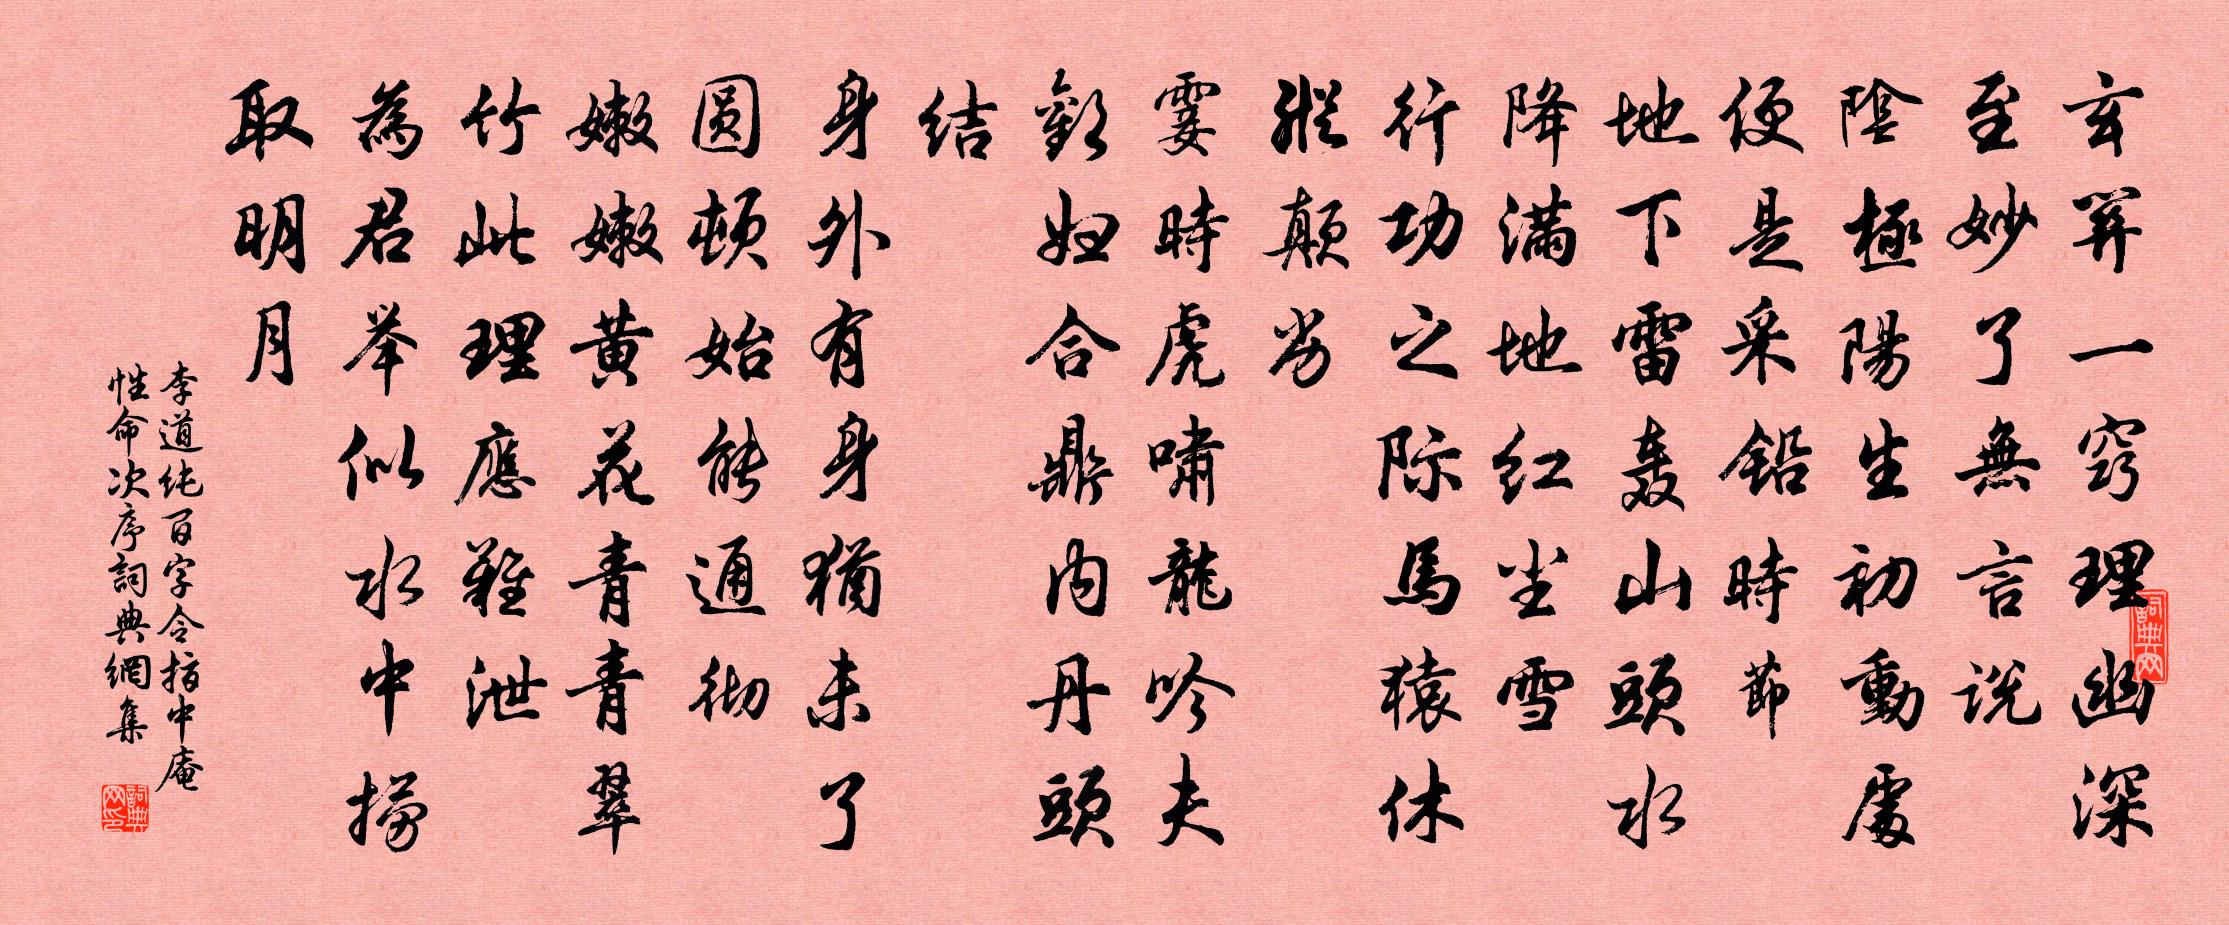 玄关一窍理幽深
至妙了無言说
陰極陽生初動處
便是采铅時節
地下雷轰山頭水
降满地红尘雪
行功之际馬猿休
纵颠劣
霎時虎啸龍吟夫
歡妇合鼎内丹頭
结
身外有身猶未了
圆顿始能通彻
嫩嫩黄花青青翠
竹此理應難泄
為君举似水中捞
取明月
李道纯百字令指中庵
性命次序詞典網集
詞典网
詞典网印